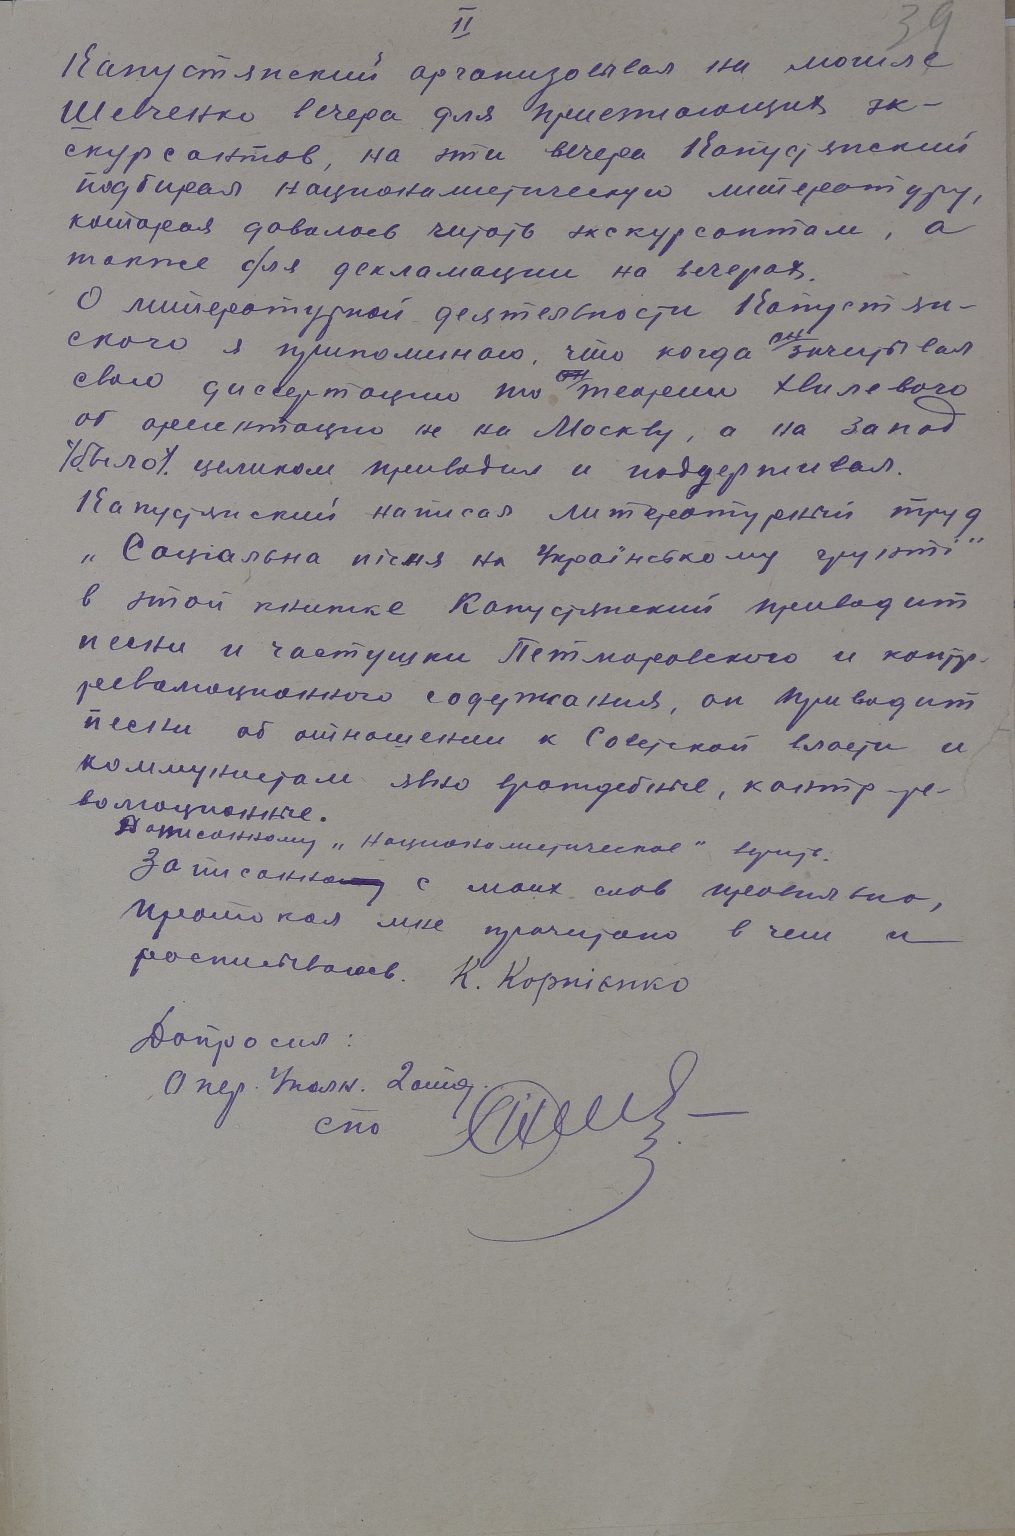 39
II
Капустянский организовывал на могиле
Шевченко вечера для приезжающих эк-
скурсантов, на эти вечера Капустянский
подбирал националистическую литературу,
которая давалось читать экскурсантам, а
также для декламации на вечерах.
О литературной деятельности Капустян-
ского я припоминаю, что когда он зачитывал
свою диссертацию то он теорию Хвилевого
об ориентацию не на Москву, а на Запад
целиком приводил и поддерживал.
Капустянский написал литературный труд
„Соціальна пісня на Українському грунті"
в этой книжке Капустянский приводит
песни и частушки Петлюровского и контр-
революционного содержания, он приводит
песни об отношении к Советской власти и
коммунистам явно враждебные, контр-ре-
волюционные.
Дописанному „националистическое" верить.
Записанно с моих слов правильно,
протокол мне прочитано в чем и
росписываюсь. К. Корнієнко
Допросил:
Опер. Уполн. 2 отд.
СПО